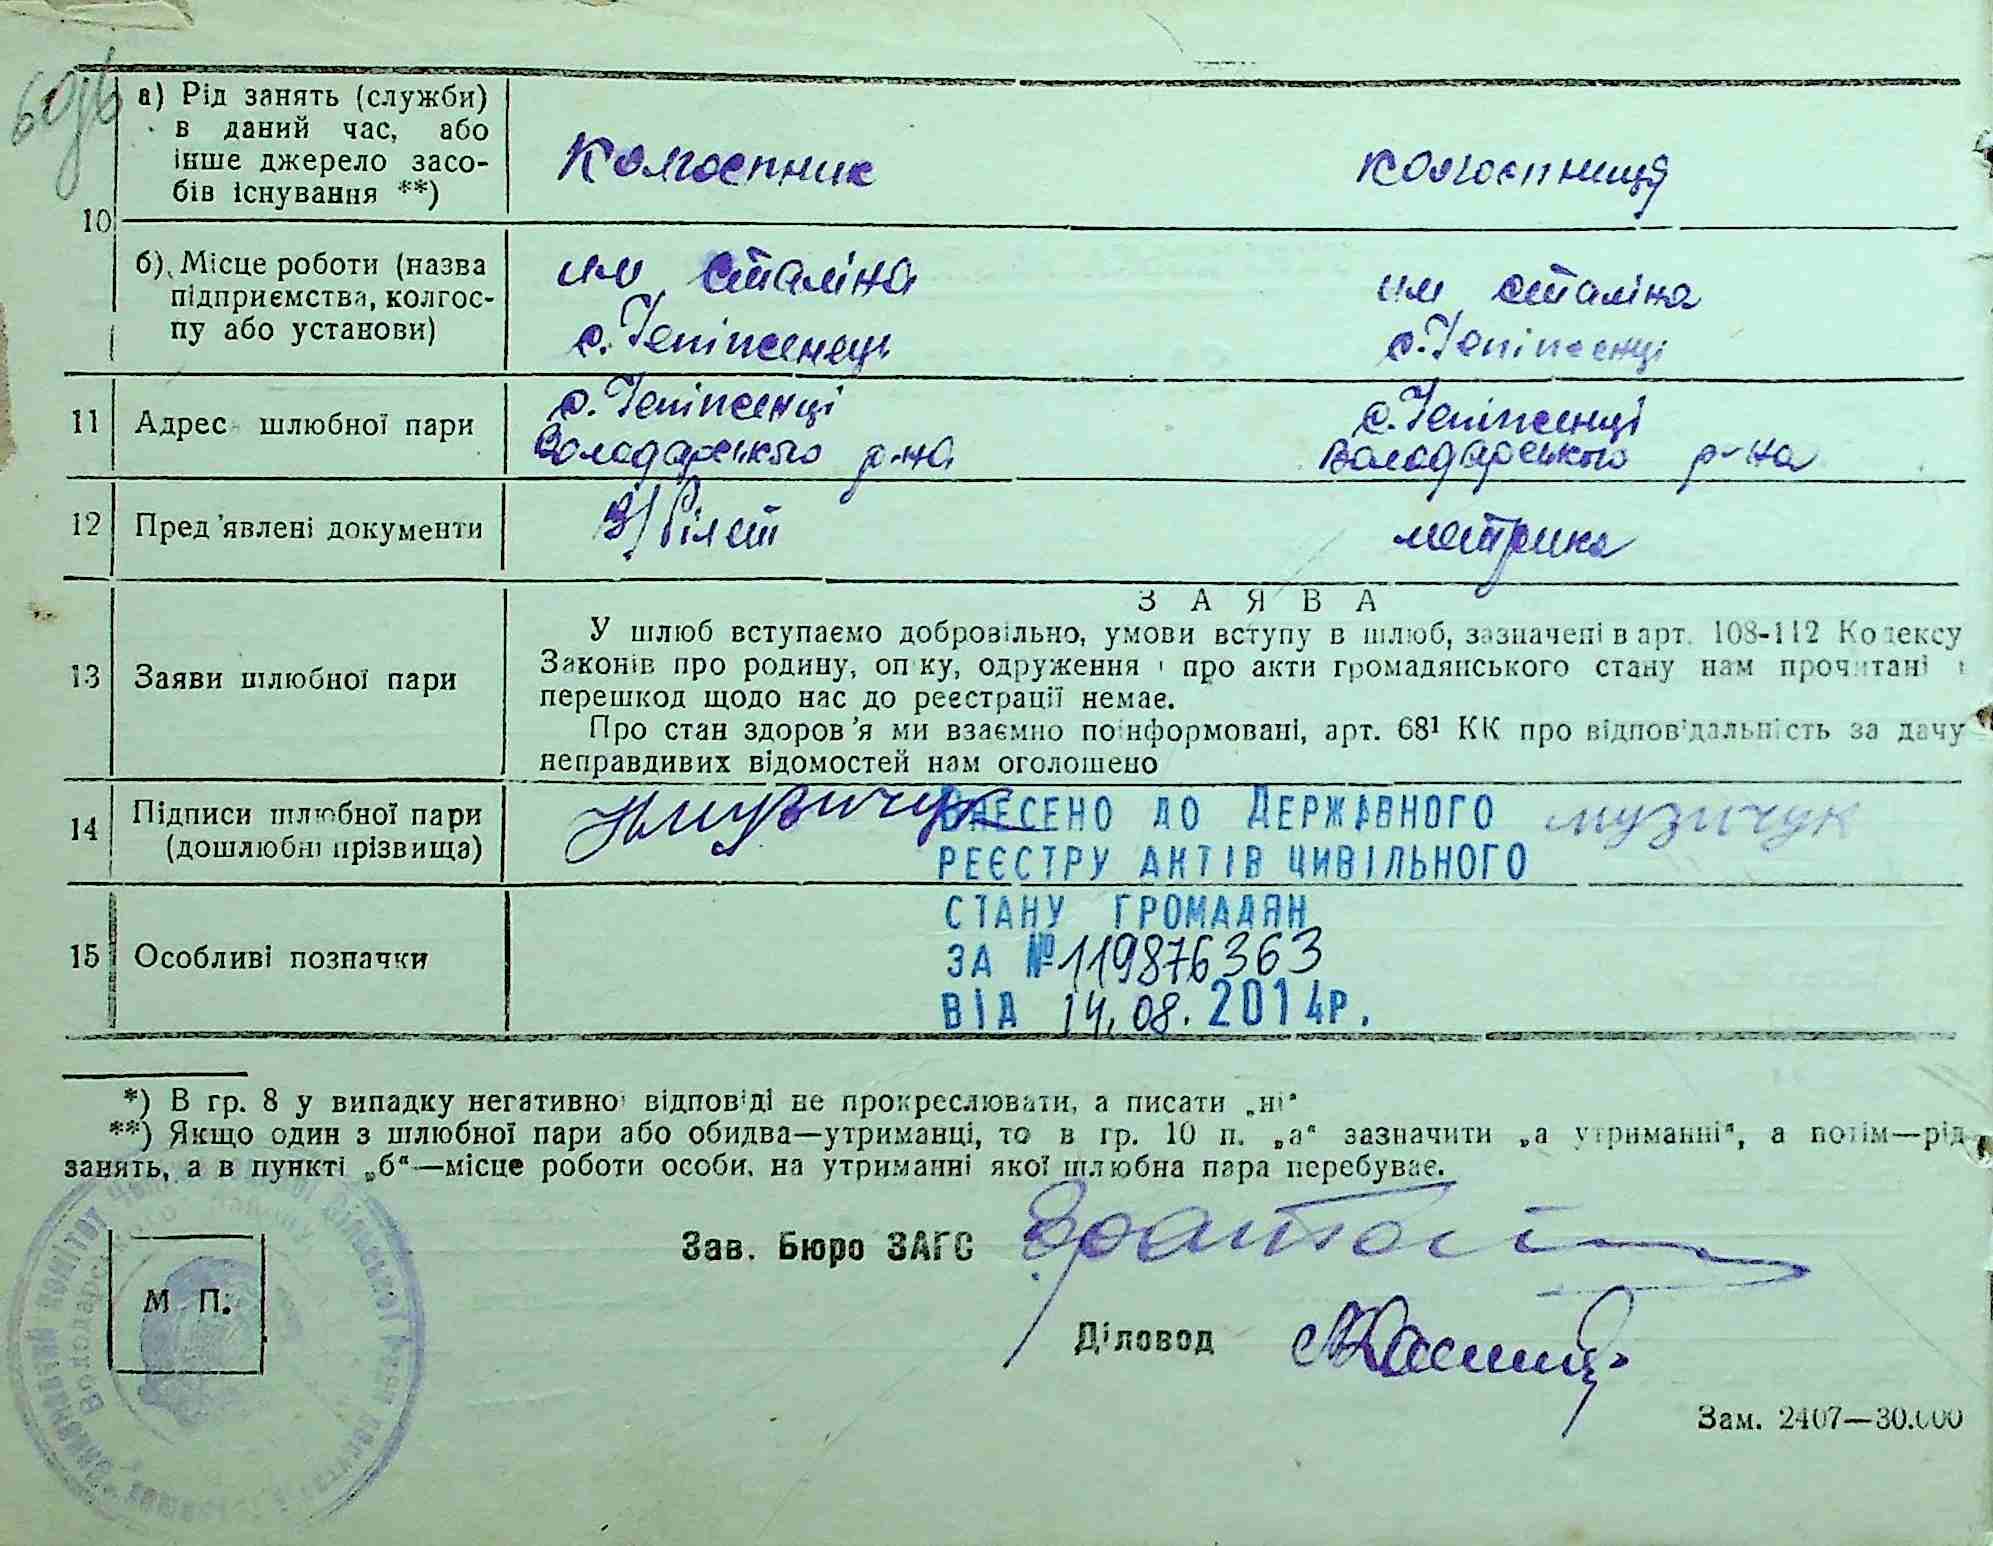 а) Рід занять (служби)
в даний час, або
інше джерело засо-
бів існування **)
Колгоспник
колгоспниця
10
б) Місце роботи (назва
підприємства, колгос-
пу або установи)
им Сталіна
с.
им сталіна
с.
11
Адрес шлюбної пари
с.
Володарського р-на
с.
Володарського р-на
12
Пред'явлені документи
В/білет
метрика
ЗАЯВА
13
Заяви шлюбної пари
У шлюб вступаємо добровільно, умови вступу в шлюб, зазначені в арт. 108-112 Кодексу
Законів про родину, опіку, одруження і про акти громадянського стану нам прочитані і
перешкод щодо нас до реєстрації немає.
Про стан здоров'я ми взаємно поінформовані, арт. 68¹ КК про відповідальність за дачу
неправдивих відомостей нам оголошено
14
Підписи шлюбної пари
(дошлюбні прізвища)
музичук
ВНЕСЕНО ДО ДЕРЖАВНОГО
РЕЄСТРУ АКТІВ ЦИВІЛЬНОГО
СТАНУ ГРОМАДЯН
ЗА №119876363
ВІД 14.08.2014р.
15
Особливі позначки
*) В гр. 8 у випадку негативної відповіді не прокреслювати, а писати „ні“
**) Якщо один з шлюбної пари або обидва—утриманці, то в гр. 10 п. „а“ зазначити „а утриманні“, а потім—рід
занять, а в пункті „б“—місце роботи особи, на утриманні якої шлюбна пара перебуває.
Зав. Бюро ЗАГС
М П.
Діловод
Зам. 2407—30.000